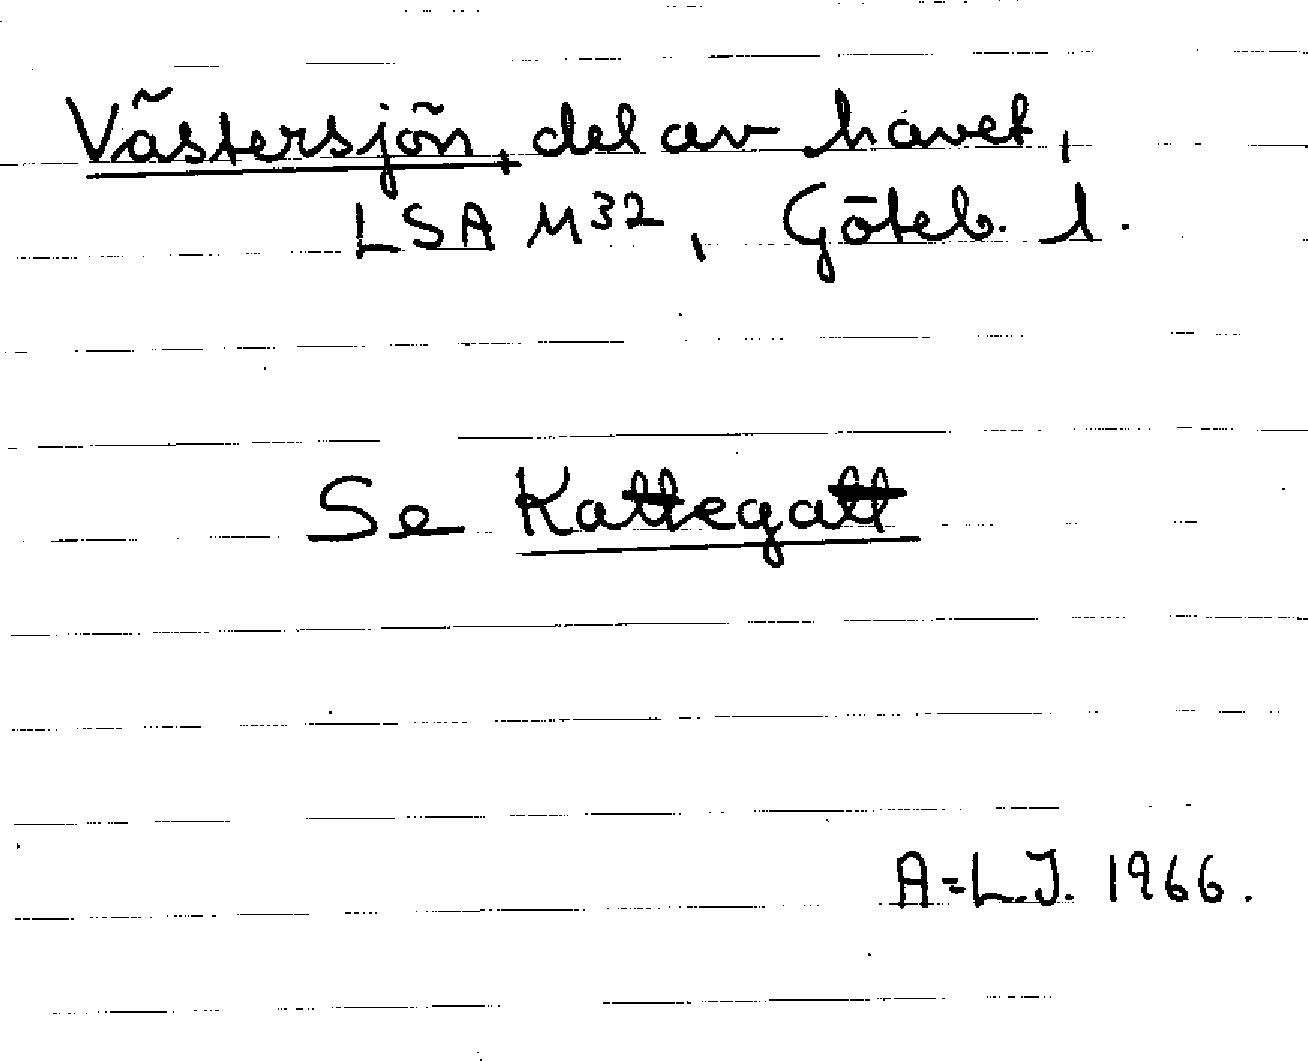 Västersjön, del av havet,
LSA M32, Göteb. l.
Se Kattegatt
A=L.J. 1966.